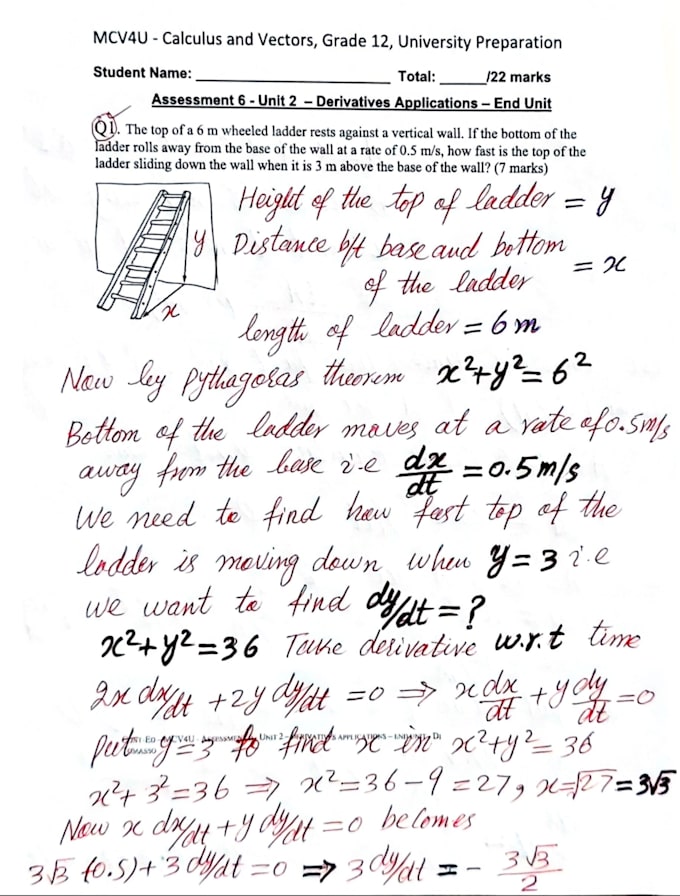 MCV4U - Calculus and Vectors, Grade 12, University Preparation
Student Name: ____________________ Total: ______/22 marks
Assessment 6 - Unit 2 – Derivatives Applications – End Unit
Q1. The top of a 6 m wheeled ladder rests against a vertical wall. If the bottom of the
ladder rolls away from the base of the wall at a rate of 0.5 m/s, how fast is the top of the
ladder sliding down the wall when it is 3 m above the base of the wall? (7 marks)
Height of the top of ladder = y
y
Distance b/t base and bottom
of the ladder = x
x
length of ladder = 6 m
Now by pythagoras theorem x²+y²=6²
Bottom of the ladder moves at a rate of 0.5m/s
away from the base i.e dx/dt = 0.5 m/s
We need to find how fast top of the
ladder is moving down when y = 3 i.e
we want to find dy/dt = ?
x²+y²=36 Take derivative w.r.t time
2x dx/dt + 2y dy/dt = 0 ⇒ x dx/dt + y dy/dt = 0
put y=3 to find x in x²+y²=36
x²+3²=36 ⇒ x²=36-9=27, x=√27=3√3
Now x dx/dt + y dy/dt = 0 becomes
3√3 (0.5)+3 dy/dt = 0 ⇒ 3 dy/dt = - 3√3/2